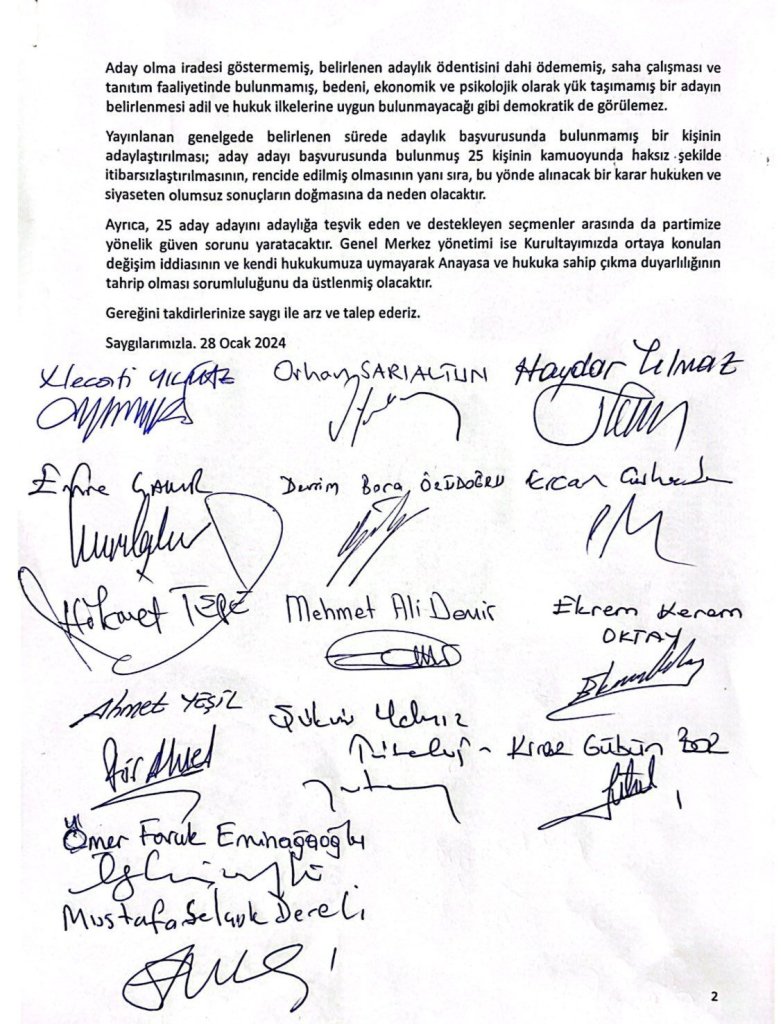 Aday olma iradesi göstermemiş, belirlenen adaylık ödentisini dahi ödememiş, saha çalışması ve
tanıtım faaliyetinde bulunmamış, bedeni, ekonomik ve psikolojik olarak yük taşımamış bir adayın
belirlenmesi adil ve hukuk ilkelerine uygun bulunmayacağı gibi demokratik de görülemez.
Yayınlanan genelgede belirlenen sürede adaylık başvurusunda bulunmamış bir kişinin
adaylaştırılması; aday adayı başvurusunda bulunmuş 25 kişinin kamuoyunda haksız şekilde
itibarsızlaştırılmasının, rencide edilmiş olmasının yanı sıra, bu yönde alınacak bir karar hukuken ve
siyaseten olumsuz sonuçların doğmasına da neden olacaktır.
Ayrıca, 25 aday adayını adaylığa teşvik eden ve destekleyen seçmenler arasında da partimize
yönelik güven sorunu yaratacaktır. Genel Merkez yönetimi ise Kurultayımızda ortaya konulan
değişim iddiasının ve kendi hukukumuza uymayarak Anayasa ve hukuka sahip çıkma duyarlılığının
tahrip olması sorumluluğunu da üstlenmiş olacaktır.
Gereğini takdirlerinize saygı ile arz ve talep ederiz.
Saygılarımızla. 28 Ocak 2024
Necati YILMAZ Orhan SARIALTUN Haydar Yılmaz
Emre Devrim Bora ÖZÜDOĞRU Ercan
Hikmet TEPE Mehmet Ali Demir Ekrem Kerem
OKTAY
Ahmet YEŞİL Şükrü Yalnız
Gübün BOZ
Ömer Faruk Eminağaoğlu
Mustafa Selçuk Dereli
2